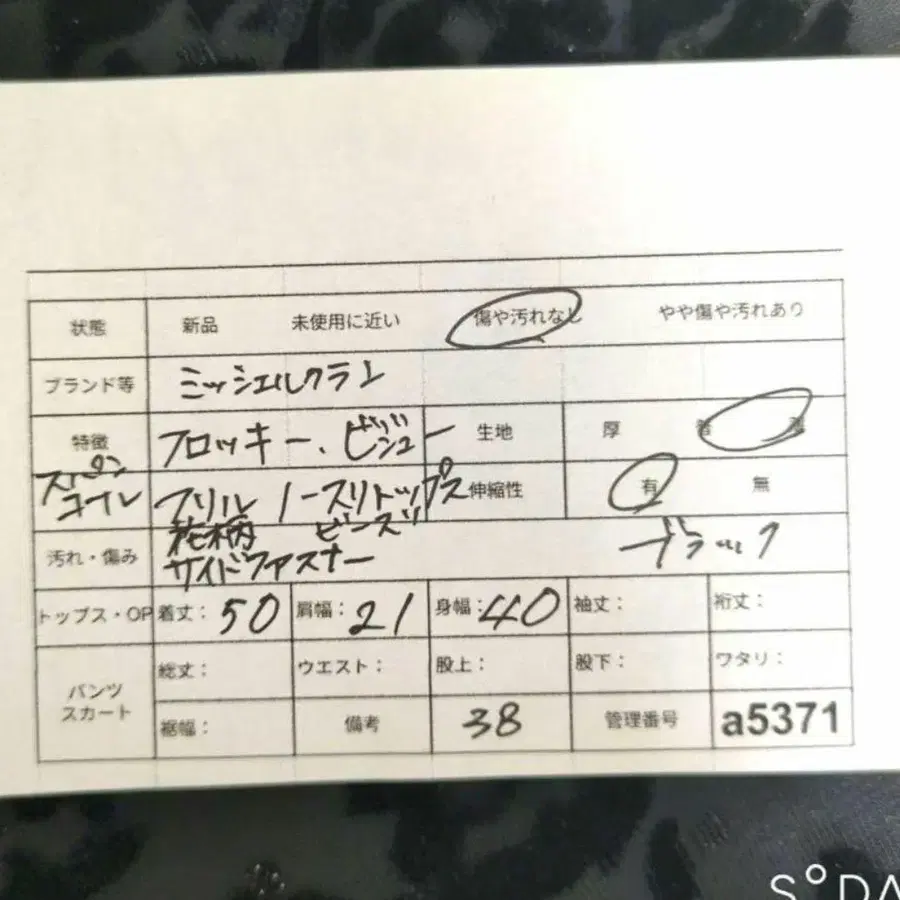 状態 新品 未使用に近い 傷や汚れなし やや傷や汚れあり
ブランド等 ミッシェルクラン
特徴 フロッキー、ビジュー 生地 厚 普 薄
スパンコール フリル ノースリトップス 伸縮性 有 無
花柄 ビーズ
汚れ・傷み サイドファスナー ブラック
トップス・OP 着丈: 50 肩幅: 21 身幅: 40 袖丈: 裄丈:
パンツ スカート 総丈: ウエスト: 股上: 股下: ワタリ:
裾幅: 備考 38 管理番号 a5371
S°DA